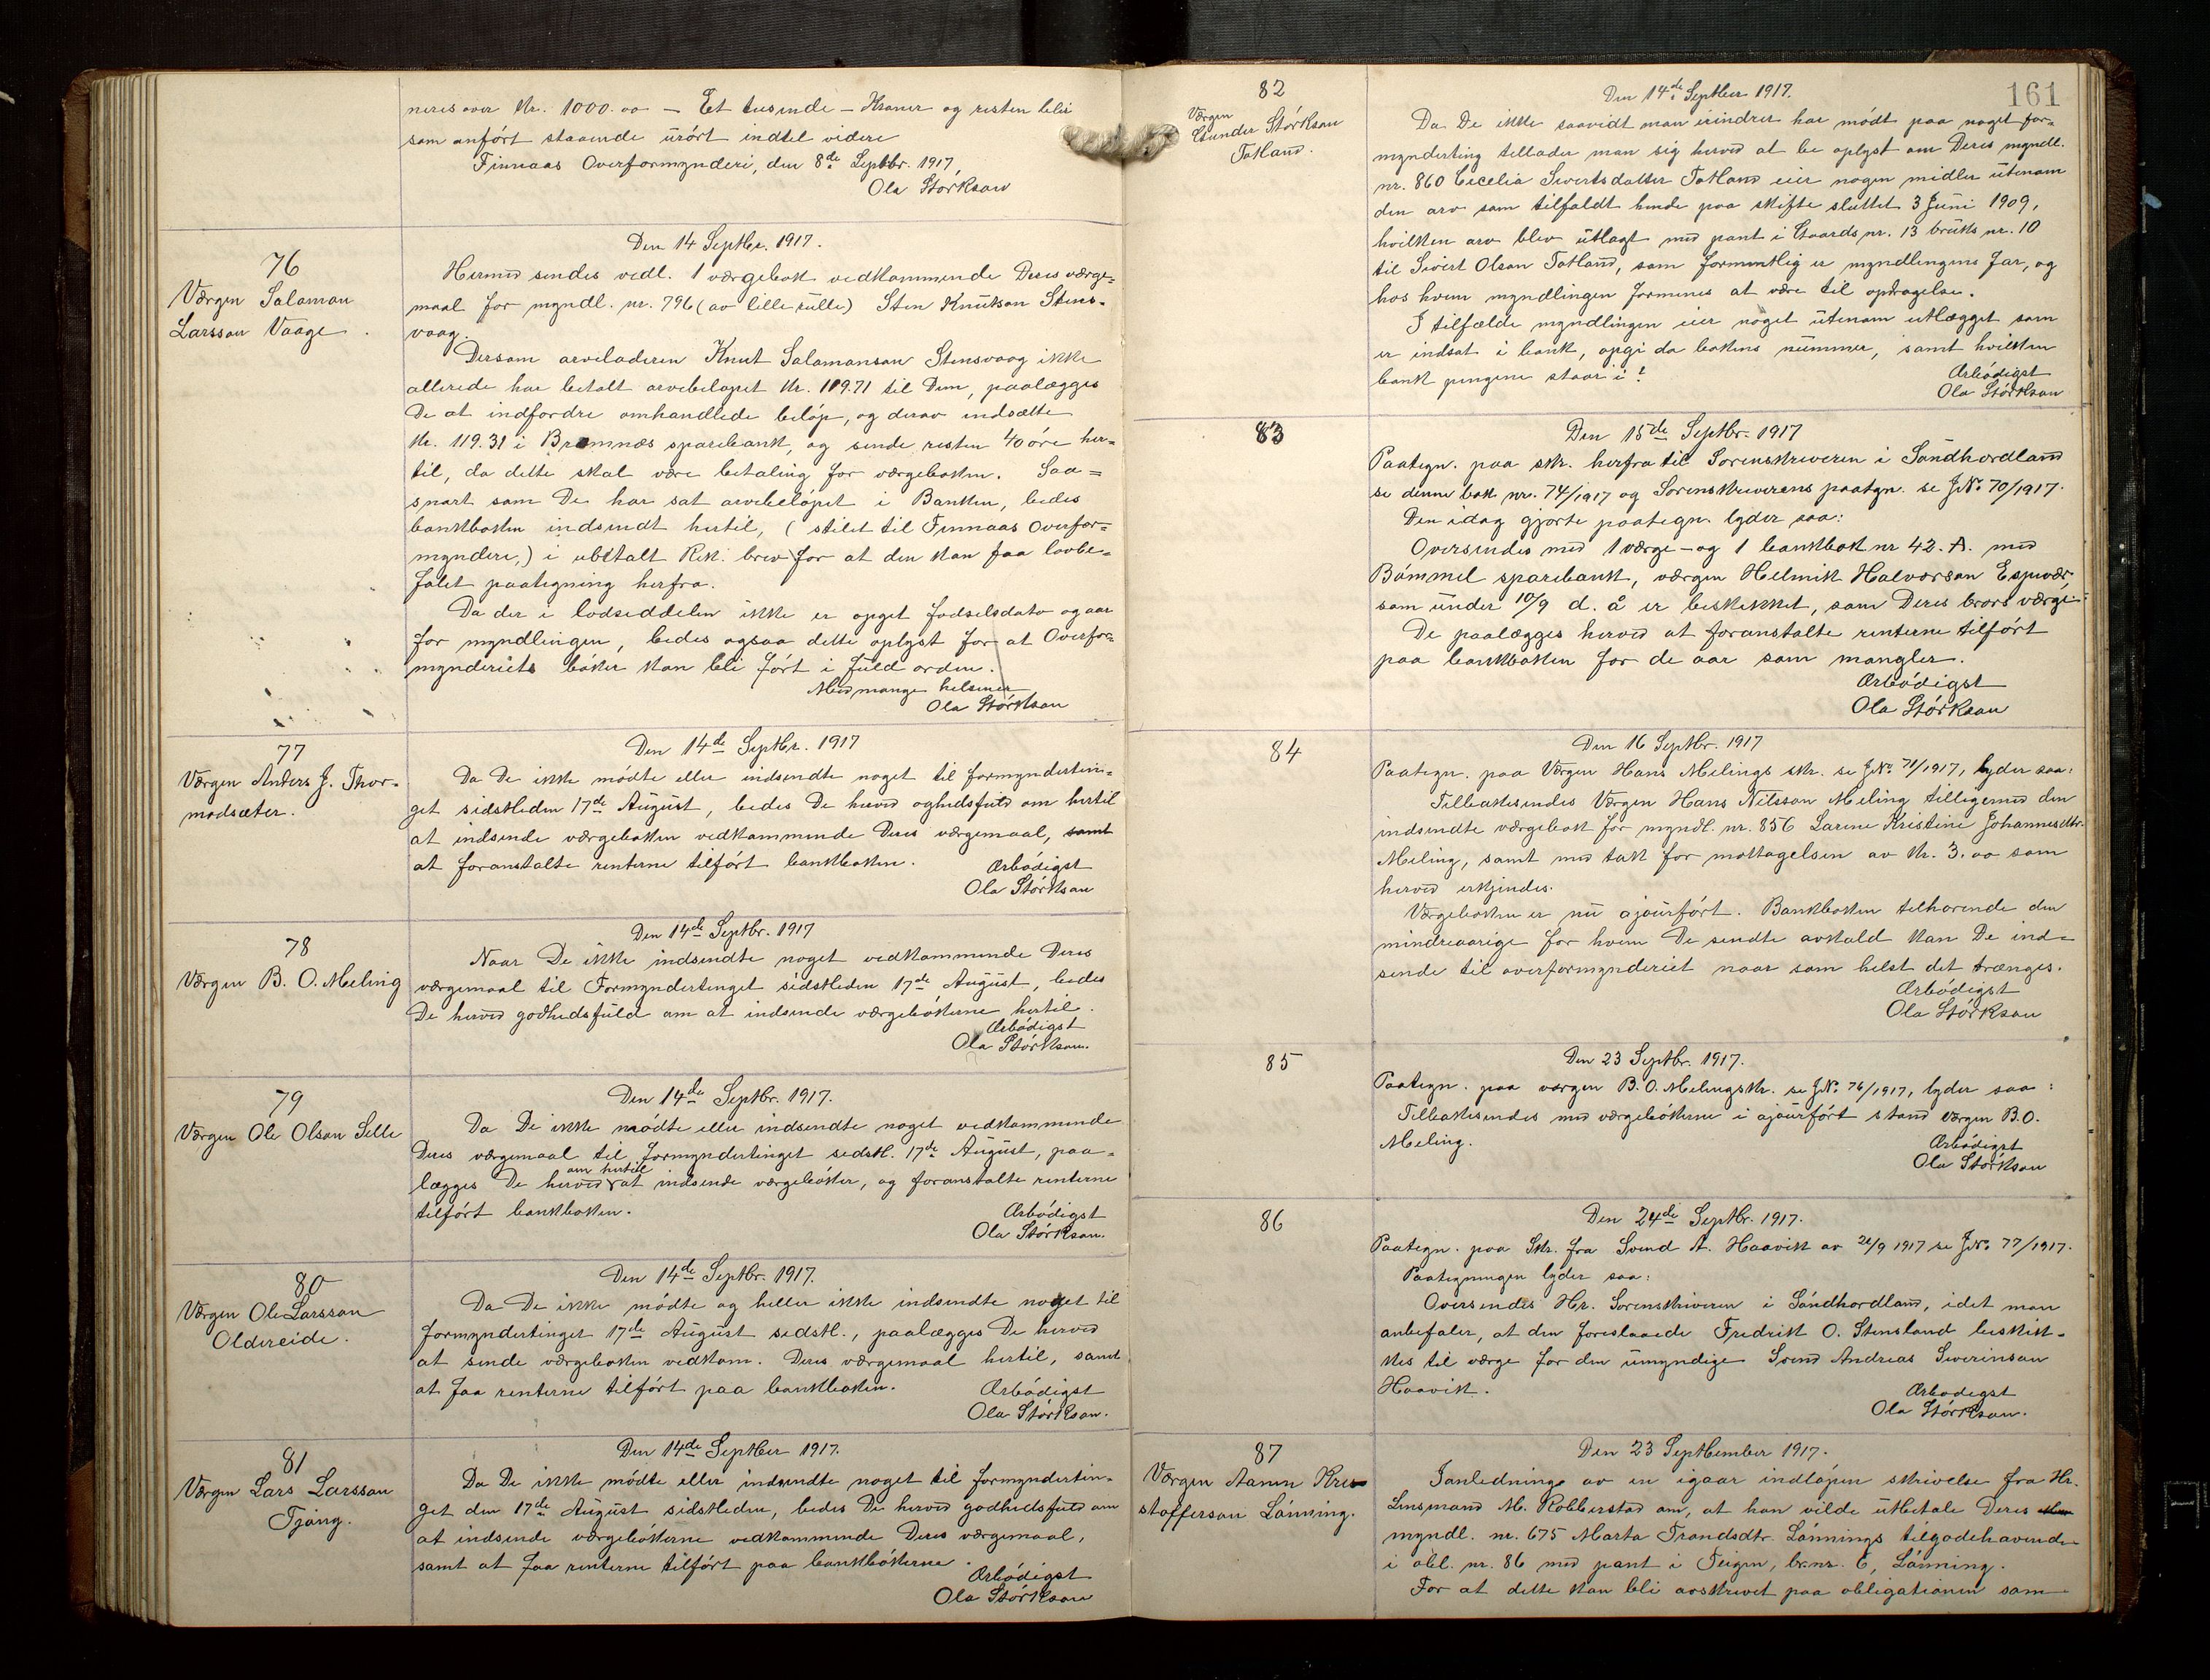 neres over Kr. 1000.00 — Et tusinde — Kroner og resten blir
som anført staaende urørt indtil videre
Finnaas Overformynderi, den 8de Septbr. 1917,
Ola Størkson
76
Værgen Salamon
Larsson Vaage.
Den 14 Septbr. 1917.
Hermed sendes vedl. 1 værgebok vedkommende Deres værge=
maal for myndl. nr. 796 (av lille rulle) Sten Knutson Stens-
vaag.
Dersom arveladeren Knut Salamonson Stensvaag ikke
allerede har betalt arvebeløpet Kr. 119.71 til Dem, paalægges
De at indfordre omhandlede beløp, og derav indsætte
Kr. 119.31 i Bremnæs sparebank, og sende resten 40 øre her=
til, da dette skal være betaling for værgeboken. Saa=
snart som De har sat arvebeløpet i Banken, bedes
bankboken indsendt hertil, (stilet til Finnaas Overfor=
mynderi,) i ubetalt Rek. brev for at den kan faa lovbe=
falet paategning herfra.
Da der i lodseddelen ikke er opget fødselsdato og aar
for myndlingen, bedes ogsaa dette oplyst for at Overfor=
mynderiets bøker kan bli ført i fuld orden.
Med mange helsener
Ola Størkson
77
Værgen Anders J. Thor-
modsæter.
Den 14de Septbr. 1917
Da De ikke mødte eller indsendte noget til formyndertin=
get sidstleden 17de August, bedes De herved oghedsfuld om hertil
at indsende værgeboken vedkommende Deres værgemaal, samt
at foranstalte renterne tilført bankboken.
Ærbødigst
Ola Størkson
78
Værgen B. O. Meling
Den 14de Septbr. 1917
Naar De ikke indsendte noget vedkommende Deres
værgemaal til Formyndertinget sidstleden 17de August, bedes
De herved godhedsfuld om at indsende værgebøkerne hertil.
Ærbødigst
Ola Størkson.
79
Værgen Ole Olson Selle
Den 14de Septbr. 1917.
Da De ikke mødte eller indsendte noget vedkommende
Deres værgemaal til Formyndertinget sidstl. 17de August, paa-
om hertil
lægges De herved at indsende værgebøker, og foranstalte renterne
tilført bankboken.
Ærbødigst
Ola Størkson.
80
Værgen Ole Larsson
Oldereide.
Den 14de Septbr. 1917.
Da De ikke mødte og heller ikke indsendte noget til
formyndertinget 17de August sidstl., paalægges De herved
at sende værgeboken vedkom. Deres værgemaal hertil, samt
at faa renterne tilført paa bankboken.
Ærbødigst
Ola Størkson.
81
Værgen Lars Larsson
Tjong.
Den 14de Septber 1917.
Da De ikke mødte eller indsendte noget til formyndertin-
get den 17de August sidstleden, bedes De herved godhedsfuld om
at indsende værgebøkerne vedkommende Deres værgemaal,
samt at faa renterne tilført paa bankbøkerne.
Ærbødigst
Ola Størkson
161
82
Værgen
Gunder Størkson
Totland.
Den 14de Septber 1917.
Da De ikke saavidt man erindrer har mødt paa noget for-
mynderting tillader man sig herved at be oplyst om Deres myndl.
nr. 860 Cecelia Sivertsdatter Totland eier nogen midler utenom
den arv som tilfaldt hende paa skifte sluttet 3 Juni 1909,
hvilken arv blev utlagt med pant i Gaards nr. 13 bruks nr. 10
til Sivert Olson Totland, som formentlig er myndlingens far, og
hos hvem myndlingen formenes at være til opdragelse.
I tilfælde myndlingen eier noget utenom utlægget som
er indsat i bank, opgi da bokens nummer, samt hvilken
bank pengene staar i!
Ærbødigst
Ola Størkson
83
Den 15de Septbr. 1917
Paategn. paa skr. herfra til Sorenskriveren i Søndhordland
se denne bok nr. 74/1917 og Sorenskriverens paategn. se J.No. 70/1917.
Den idag gjorte paategn. lyder saa:
Oversendes med 1 værge- og 1 bankbok nr 42. A. med
Bømmel sparebank, værgen Helmik Halvorson Espevær,
som under 10/9 d. å er beskikket, som Deres brors værge.
De paalægges herved at foranstalte renterne tilført
paa bankboken for de aar som mangler.
Ærbødigst
Ola Størkson
84
Den 16 Septbr. 1917
Paategn. paa Værgen Hans Melings skr. se J.No. 71/1917, lyder saa:
Tilbakesendes Værgen Hans Nilsson Meling tilligemed den
indsendte værgebok for myndl. nr. 856 Larine Kristine Johannesdtr.
Meling, samt med tak for mottagelsen av Kr. 3.00 som
herved erkjendes.
Værgeboken er nu ajourført. Bankboken tilhørende den
mindreaarige for hvem De sendte avkald kan De ind=
sende til overformynderiet naar som helst det trænges.
Ærbødigst
Ola Størkson
85
Den 23 Septbr. 1917.
Paategn. paa værgen B. O. Melings skr. se J.No. 76/1917, lyder saa:
Tilbakesendes med værgebøkerne i ajourført stand værgen B.O.
Meling.
Ærbødigst
Ola Størkson
86
Den 24de Septbr. 1917.
Paategn. paa Skr. fra Svend A. Haavik av 21/9 1917 se J.No. 77/1917.
Paategningen lyder saa:
Oversendes Hr. Sorenskriveren i Søndhordland, idet man
anbefaler, at den foreslaaede Fredrik O. Stensland beskik-
kes til værge for den umyndige Svend Andreas Severinson
Haavik.
Ærbødigst
Ola Størkson.
87
Værgen Aamun Kris-
stofferson Lønning.
Den 23 September 1917.
Ianledning av en igaar indløpen skrivelse fra Hr.
Lensmand M. Robberstad om, at han vilde utbetale Deres
myndl. nr. 675 Marta Trondsdtr. Lønnings tilgodehavende
i obl. nr. 86 med pant i Teigen, br.nr. 6, Lønning.
For at dette kan bli avskrevet paa obligationen som